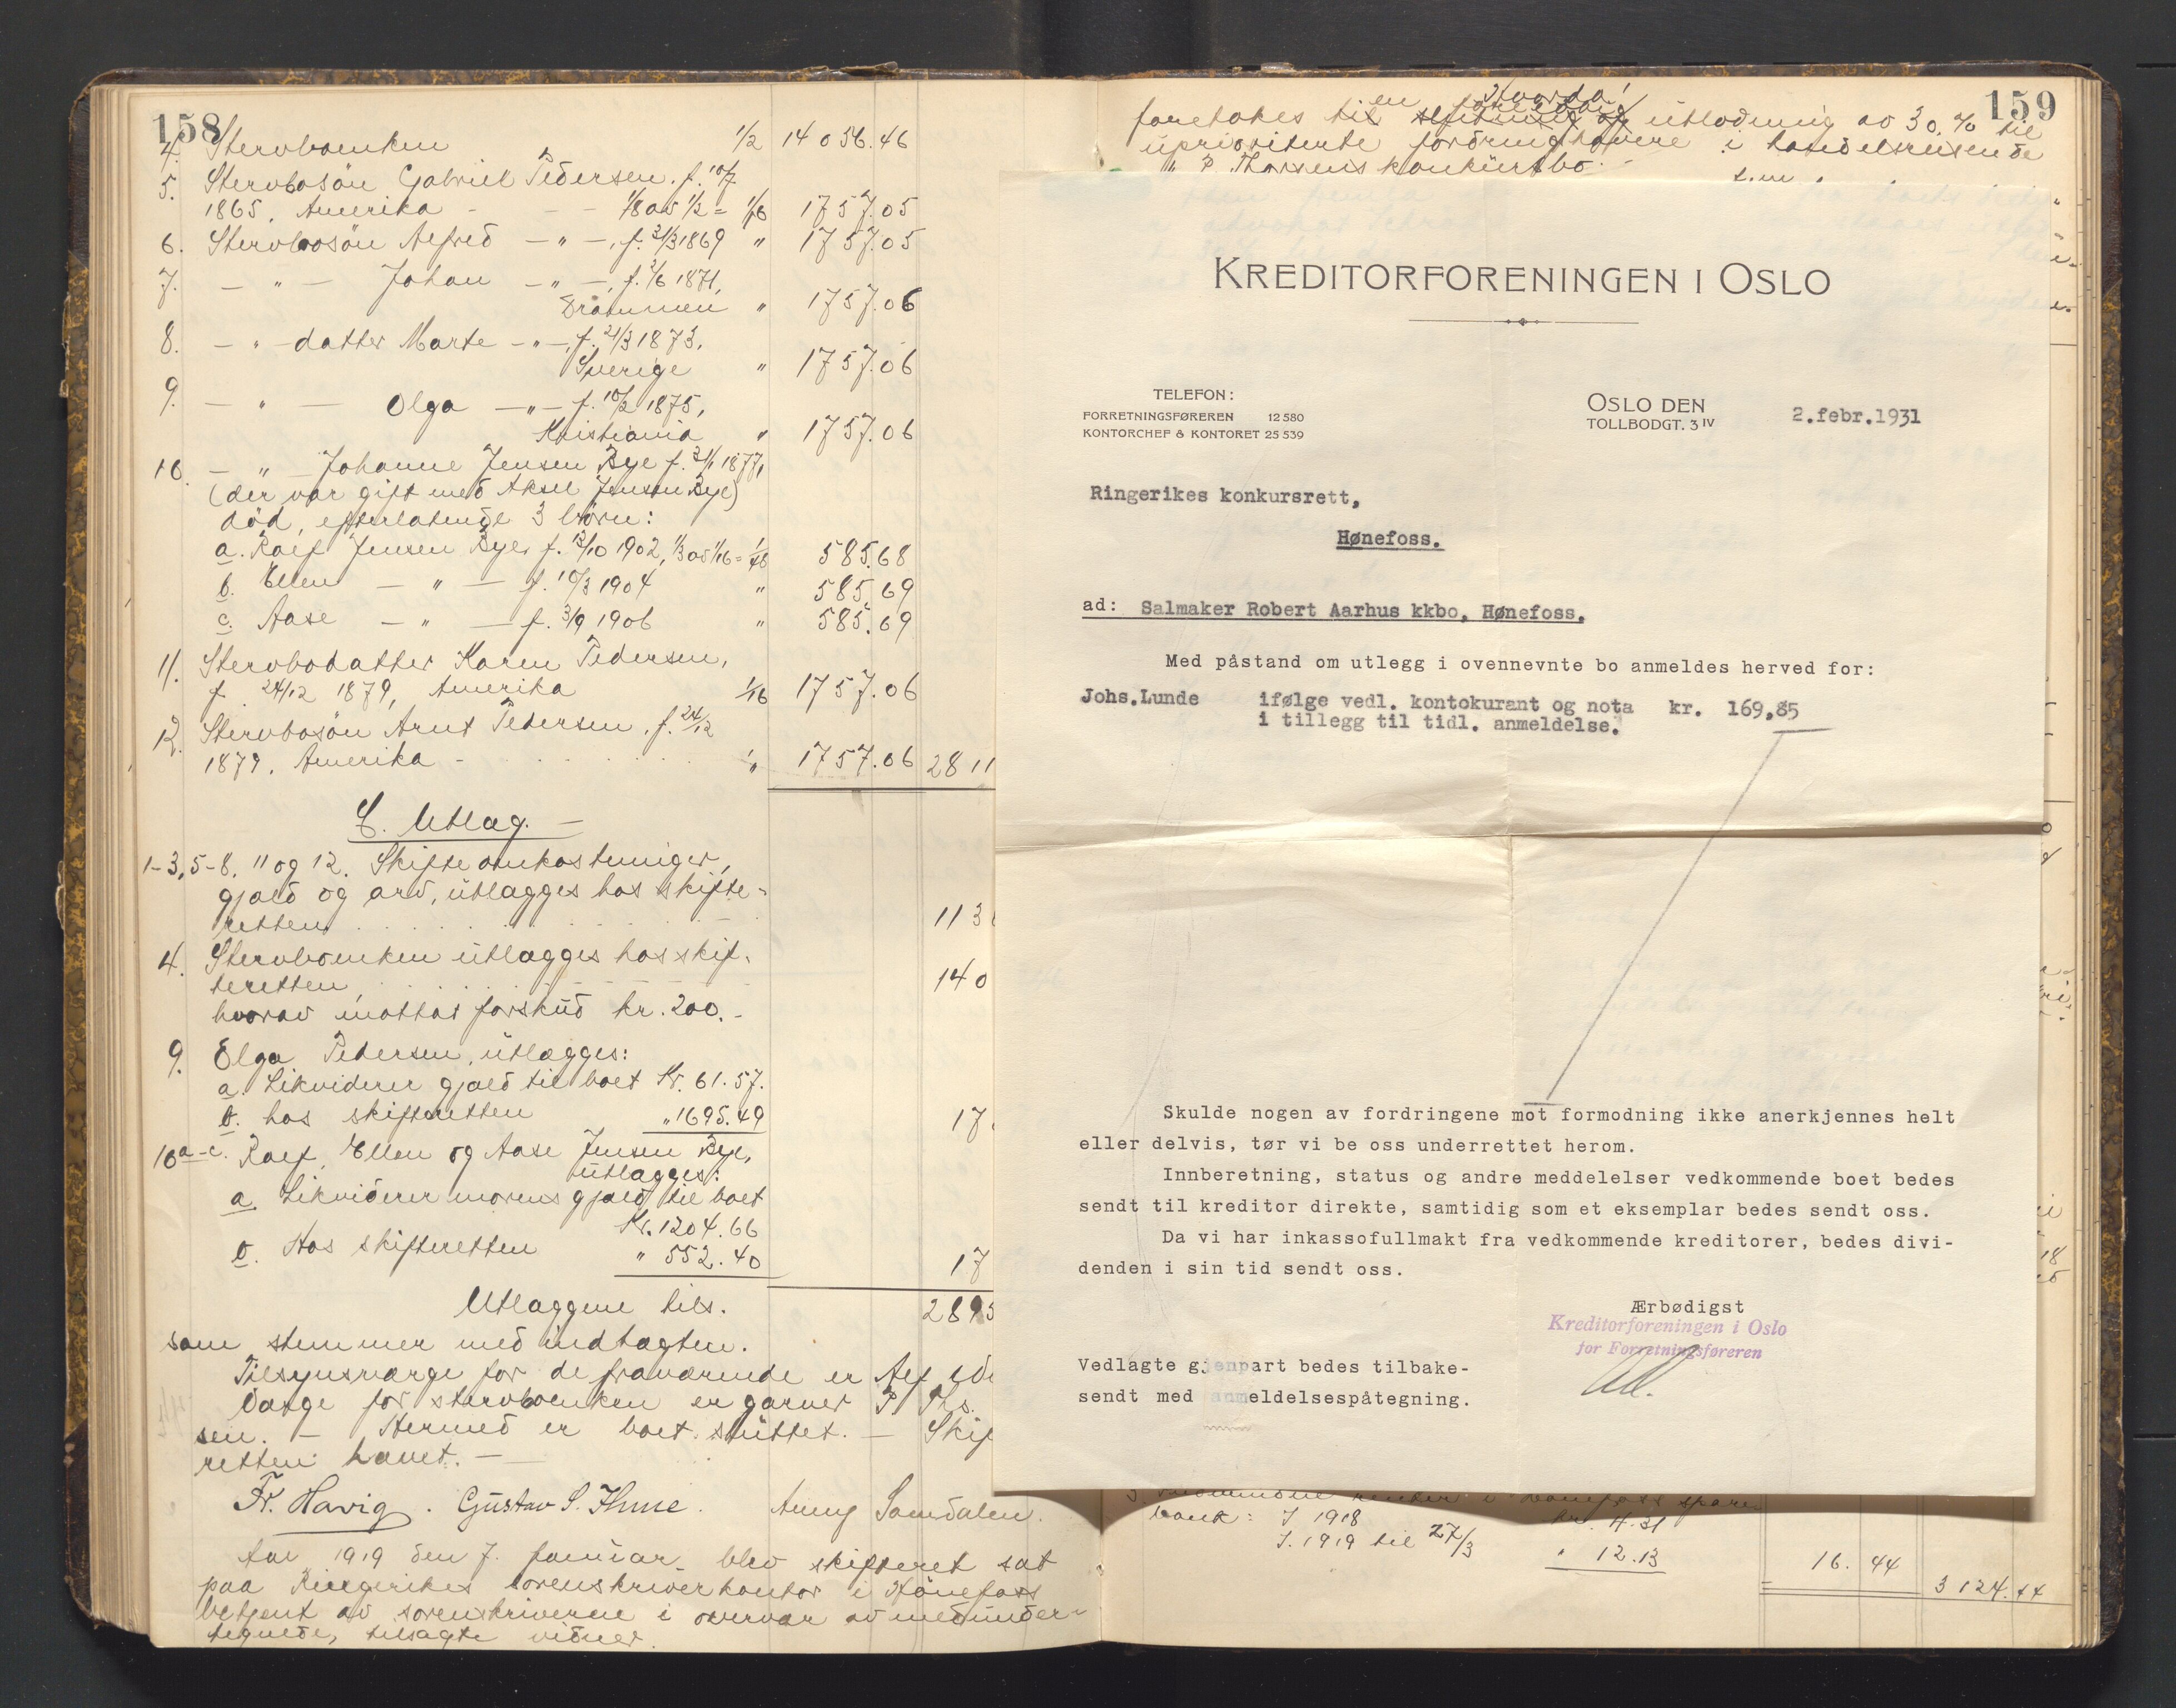 158
4. Stervboenken 1/2 14 056.46
5. Stervbosön Gabriel Pedersen. f. 10/7
1865. Amerika - - - 1/8 av 1/2 = 1/16 1757.05
6. Stervbosön Alfred — " —, f. 21/3 1869 " 1757.05
7. — " — Johan — " —, f. 2/6 1871,
Drammen " 1757.06
8. — " — datter Marte — " —, f. 21/3 1873,
Sverige " 1757.06
9. — " — Olga — " — f. 10/2 1875,
Kristiania " 1757.06
10. — " — Johanne Jensen Bye f. 21/1 1877,
(der var gift med Aksel Jensen Bye)
död, efterlatende 3 börn:
a. Ralf Jensen Bye, f. 12/10 1902, 1/3 av 1/16 = 1/48 585.68
b. Ellen — " — f. 10/3 1904 " 585.69
c. Aase — " — f. 3/9 1906 " 585.69
11. Stervbodatter Karen Pedersen,
f. 24/12 1879, Amerika 1/16 1757.06
12. Stervbosön Arnt Pedersen, f. 24/12
1879, Amerika - " 1757.06 2811
C. Utlæg. —
1-3, 5-8, 11 og 12. Skifteomkostninger,
gjæld og arv, utlægges hos skifte-
retten 113
4. Stervboenken utlægges hos skif-
teretten 140
hvorav mottat forskud kr. 200.-
9. Olga Pedersen, utlægges:
a. Likviderer gjæld til boet Kr. 61.57.
b. hos skifteretten " 1695.49 17
10 a-c. Ralf, Ellen og Aase Jensen Bye,
utlægges:
a. Likviderer morens gjæld til boet
Kr. 1204.66
b. Hos skifteretten " 552.40 17
Utlæggene tils. 2895
som stemmer med indtægten.
Tilsynsværge for de fraværende er Alf
Værge for stervboenken er garver P. Ths.
sen. — Hermed er boet sluttet. — Skif
retten hævet. —
Fr. Havig. Gustav S. Hme. Anny Somdalen.
Aar 1919 den 7. januar blev skifteret sat
paa Ringerikes sorenskriverkontor i Hönefoss
betjent av sorenskriveren i overvær av medunder-
tegnede, tilsagte vidner.
159
foretokes til en utlodning av 30 % til
uprioriterte fordringshavere i handelsreisende
P Thorsens konkursbo.
KREDITORFORENINGEN I OSLO
TELEFON:
FORRETNINGSFØREREN 12 580
KONTORCHEF & KONTORET 25 539
OSLO DEN 2.febr.1931
TOLLBODGT. 3 IV
Ringerikes konkursrett,
Hønefoss.
ad: Salmaker Robert Aarhus kkbo, Hønefoss.
Med påstand om utlegg i ovennevnte bo anmeldes herved for:
Johs.Lunde ifølge vedl. kontokurant og nota kr. 169,85
i tillegg til tidl. anmeldelse.
Skulde nogen av fordringene mot formodning ikke anerkjennes helt
eller delvis, tør vi be oss underrettet herom.
Innberetning, status og andre meddelelser vedkommende boet bedes
sendt til kreditor direkte, samtidig som et eksemplar bedes sendt oss.
Da vi har inkassofullmakt fra vedkommende kreditorer, bedes divi-
denden i sin tid sendt oss.
Ærbødigst
Kreditorforeningen i Oslo
for Forretningsføreren
Vedlagte gjenpart bedes tilbake-
sendt med anmeldelsespåtegning.
bank: I 1918 kr. 4.31
I. 1919 til 27/3 " 12.13 16.44 3 124.44